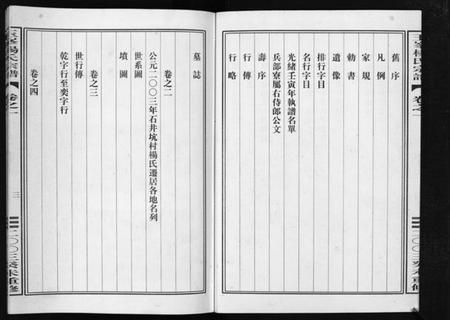 舊序
凡例
家規
勅書
遺像
排行字目
名行字目
光緒壬寅年執譜名單
兵部寮屬右侍郎公文
壽序
行傳
行略
墓誌
卷之二
公元二〇〇三年石井坑村楊氏遷居各地名列
世系圖
墳圖
卷之三
世行傳
乾字行至奕字行
卷之四
楊氏宗譜
卷之一
三
二〇〇三癸未重修